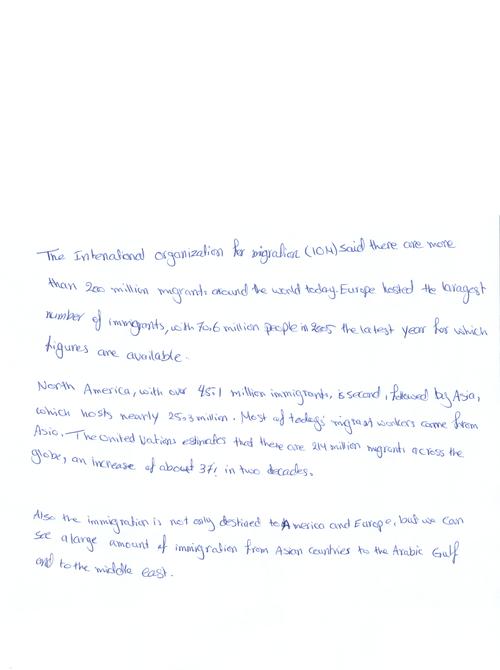 The Intenational organization for migration (IOM) said there are more
than 200 million migrants around the world today. Europe hosted the laragest
number of immigrants, with 70.6 million people in 2005 the latest year for which
figures are available.
North America, with over 45.1 million immigrants, is second, followed by Asia,
which hosts nearly 25.3 million. Most of today's migrant workers come from
Asia. The United Nations estimates that there are 214 million migrants across the
globe, an increase of about 37% in two decades.
Also the immigration is not only destined to America and Europe, but we can
see a large amount of immigration from Asian countries to the Arabic Gulf
and to the middle east.